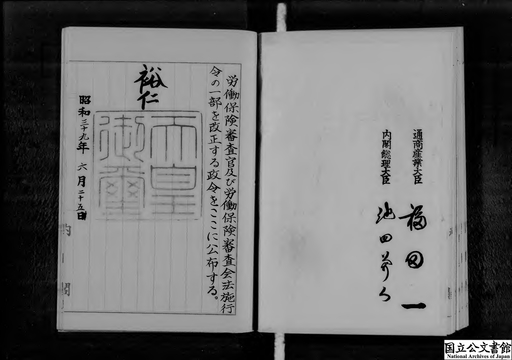 労働保険審査官及び労働保険審査会法施行
令の一部を改正する政令をここに公布する。
裕仁
天皇
御璽
昭和三十九年六月二十五日
内閣
通商産業大臣 福田一
内閣総理大臣 池田勇人
国立公文書館
National Archives of Japan